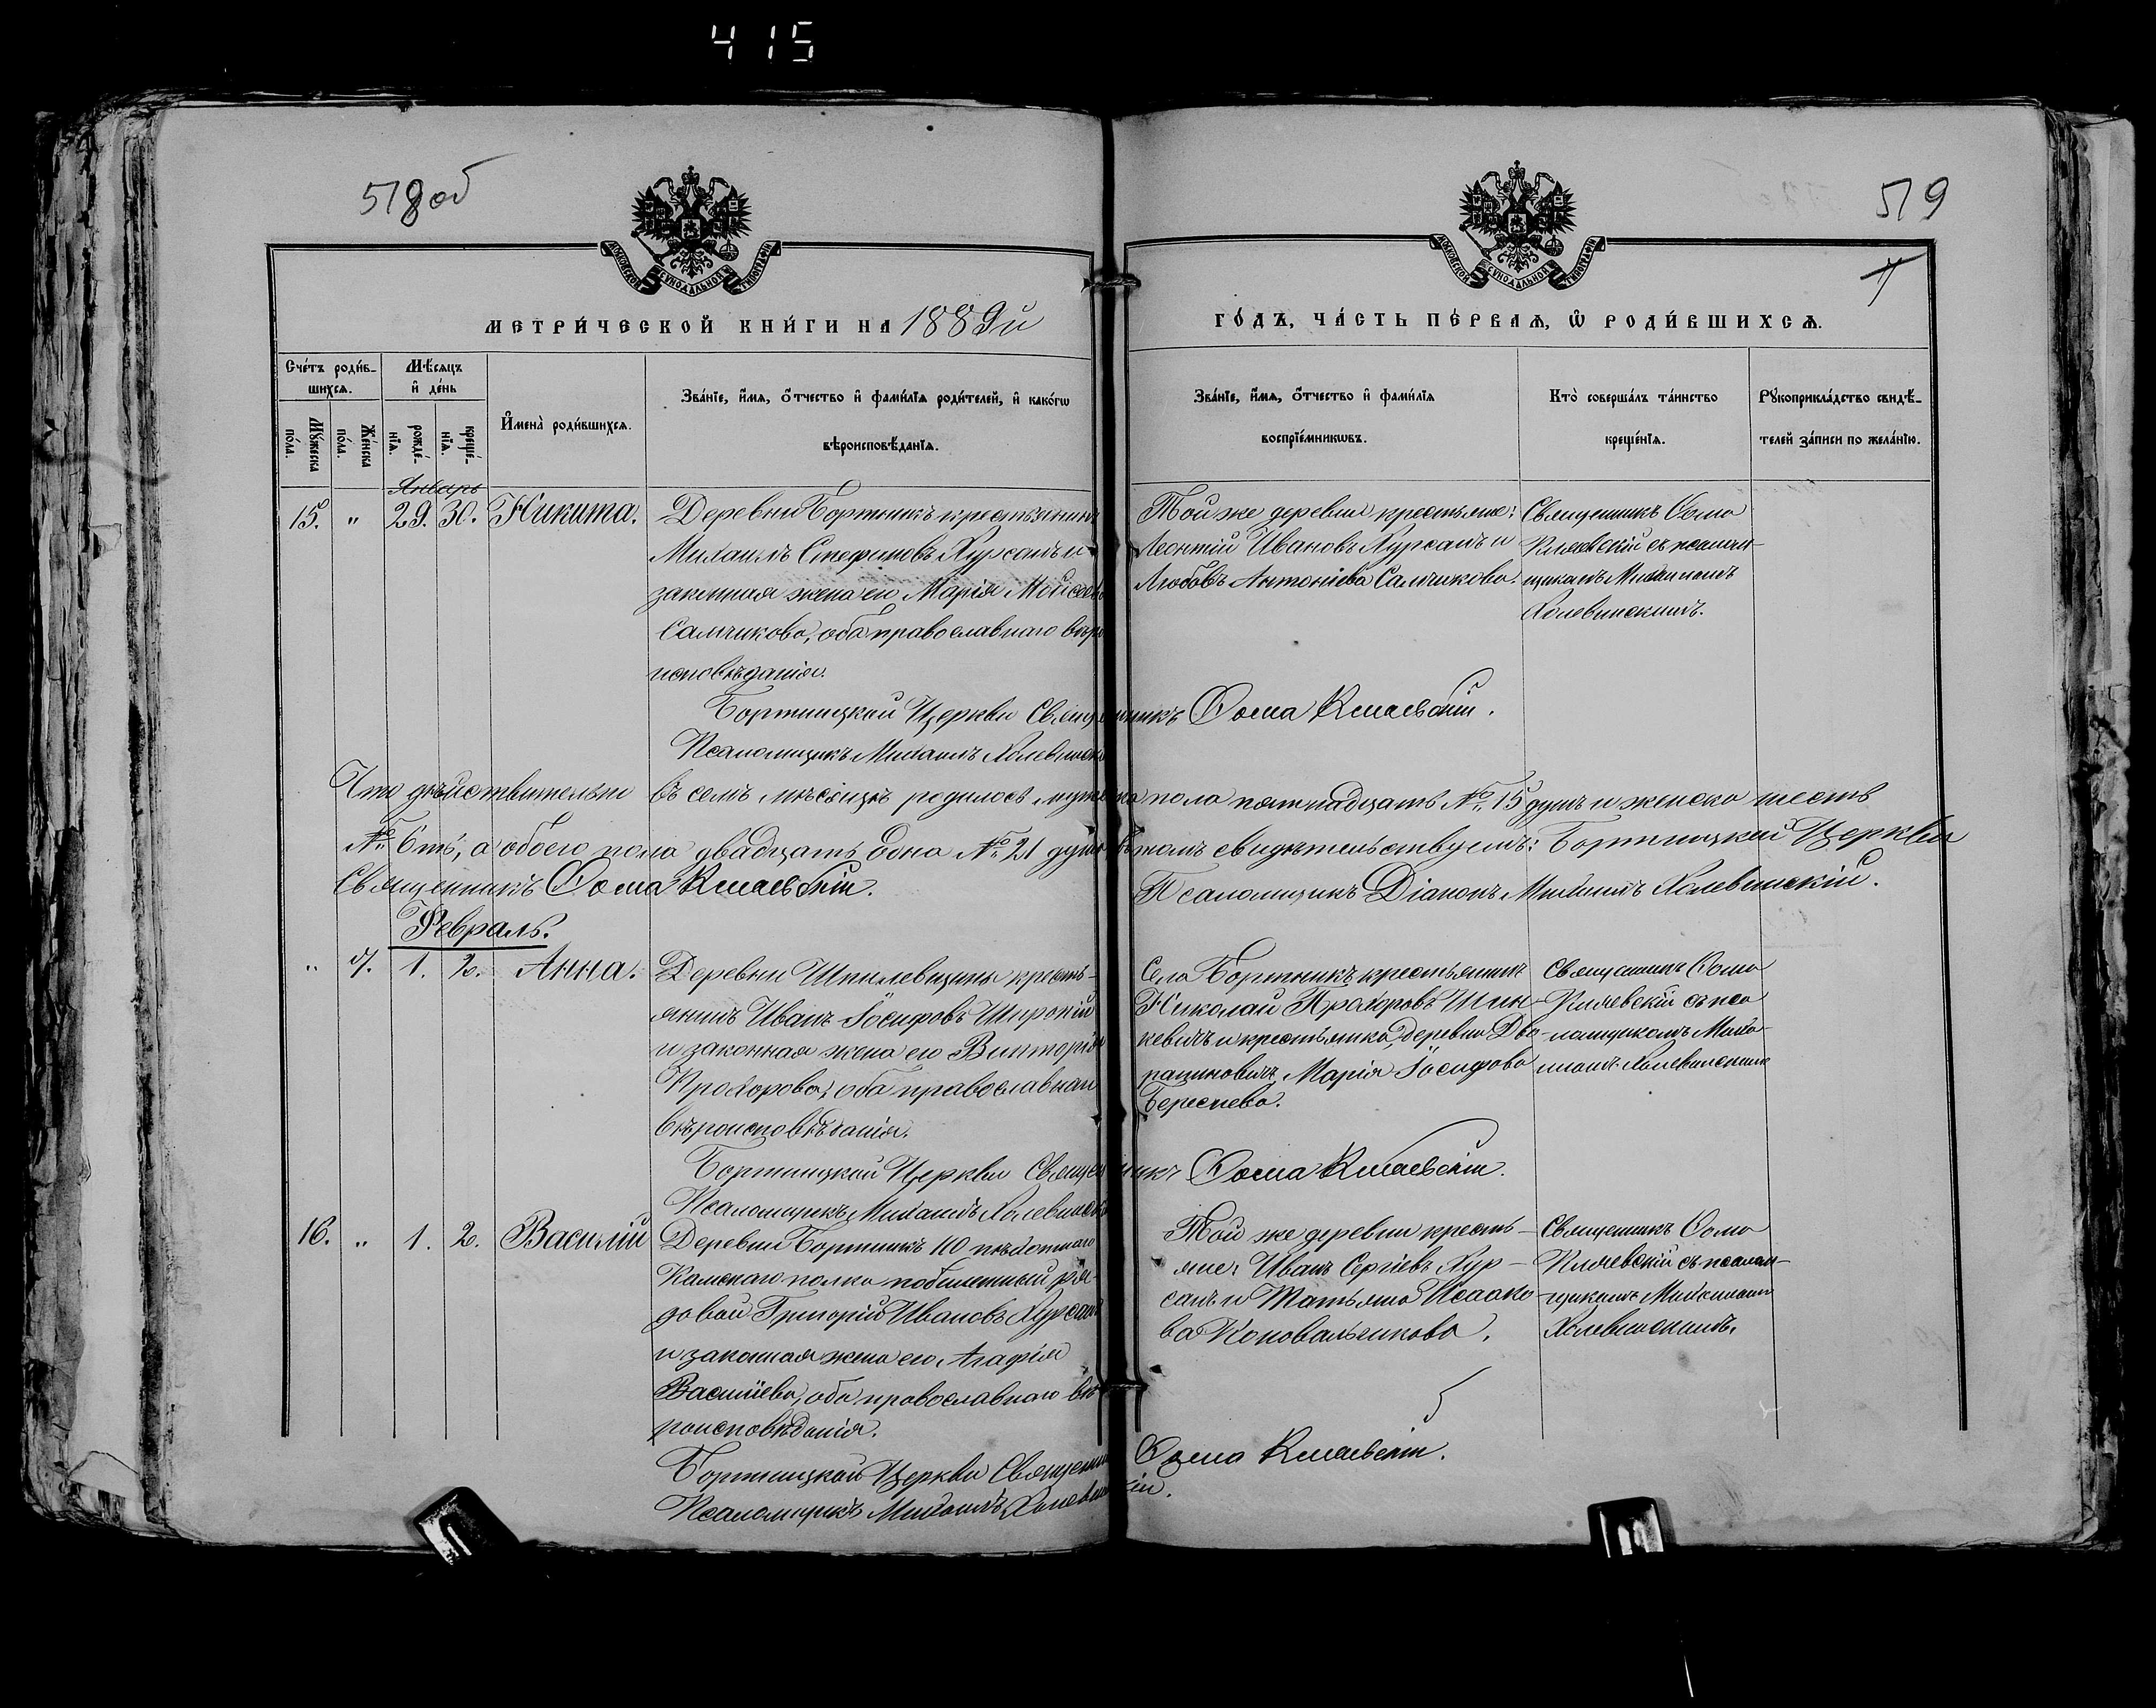 415
518 об
519
МОСКОВСКОЙ СУНОДАЛЬНОЙ ТИПОГРАФІИ
МОСКОВСКОЙ СУНОДАЛЬНОЙ ТИПОГРАФІИ
МЕТРИ́ЧЕСКОЙ КНИ́ГИ НА 1889й
ГО́ДЪ, ЧА́СТЬ ПЕ́РВАЯ, Ѡ҆ РОДИ́ВШИХСЯ.
Сче́тъ роди́в-
шихся.
Мꙋ́жеска по́ла.
Же́нска по́ла.
Мѣ́сяцъ
и҆ де́нь
рожде́-
нїя.
креще́-
нїя.
И҆мена̀ роди́вшихся.
Зва́нїе, и҆́мя, ѻ҆́тчество и҆ фами́лїя роди́телей, и҆ како́гѡ
вѣроисповѣ́данїя.
Зва́нїе, и҆́мя, ѻ҆́тчество и҆ фами́лїя
воспрїе́мникѡвъ.
Кто̀ соверша́лъ та́инство
креще́нїя.
Рꙋкоприкла́дство свидѣ́-
телей за́писи по жела́нїю.
Январь
15. " 29. 30. Никита.
Деревни Бортникъ крестьянинъ
Михаилъ Стефановъ Хурсанъ и
законная жена его Марія Моисеев
Самчикова, оба православнаго вѣро
исповѣданія.
Той же деревни крестьяне:
Леонтій Ивановъ Хурсанъ и
Любовь Антоніева Самчикова.
Священникъ Ѳома
Кляевскій съ псалом-
щикомъ Михаиломъ
Холевинскимъ.
Бортницкой Церкви Священникъ Ѳома Кляевскій.
Псаломщикъ Михаилъ Холевинск
Что дѣйствительно въ семъ мѣсяцѣ родилось мужеска пола пятнадцать № 15 душъ и женска шесть
№ 6ть, а обоего пола двадцать одна № 21 душъ въ томъ свидѣтельствуемъ: Бортницкой Церкви
Священникъ Ѳома Кляевскій. Псаломщикъ Діаконъ Михаилъ Холевинскій.
Февраль.
" 7. 1. 2. Анна.
Деревни Шпилевщины кресть-
янинъ Иванъ Іосифовъ Широкій
и законная жена его Викторія
Прохорова, оба православнаго
вѣроисповѣданія.
Села Бортникъ крестьянинъ
Николай Прохоровъ Шин-
кевичъ и крестьянка деревни Дво-
рациновичъ Марія Іосифова
Береснева.
Священникъ Ѳома
Кляевскій съ пса
ломщикомъ Миха-
иломъ Холевинскимъ
Бортницкой Церкви Священникъ Ѳома Кляевскій.
Псаломщикъ Михаилъ Холевинск
16. " 1. 2. Василій
Деревни Бортникъ 110 пѣхотнаго
Камскаго полка побилетный ря-
довой Григорій Ивановъ Хурсанъ
и законная жена его Агафія
Василіева, оба православнаго вѣ-
роисповѣданія.
Той же деревни кресть-
яне: Иванъ Сергіевъ Хур-
санъ и Татьяна Исаако-
ва Коновальчикова.
Священникъ Ѳома
Кляевскій съ псалом-
щикомъ Михаиломъ
Холевинскимъ.
Бортницкой Церкви Священникъ Ѳома Кляевскій.
Псаломщикъ Михаилъ Холевинскій.